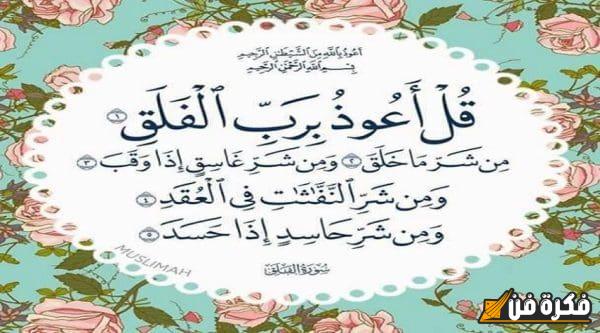 اعوذ بالله من الشيطن الرجيم
بِسْمِ اللَّهِ الرَّحْمَنِ الرَّحِيمِ
قُلْ أَعُوذُ بِرَبِّ ٱلْفَلَقِ ١
مِن شَرِّ مَا خَلَقَ ٢ وَمِن شَرِّ غَاسِقٍ إِذَا وَقَبَ ٣
وَمِن شَرِّ ٱلنَّفَّٰثَٰتِ فِى ٱلْعُقَدِ ٤
وَمِن شَرِّ حَاسِدٍ إِذَا حَسَدَ ٥
سورة الفلق
MUSLIMAH
فكرة فن